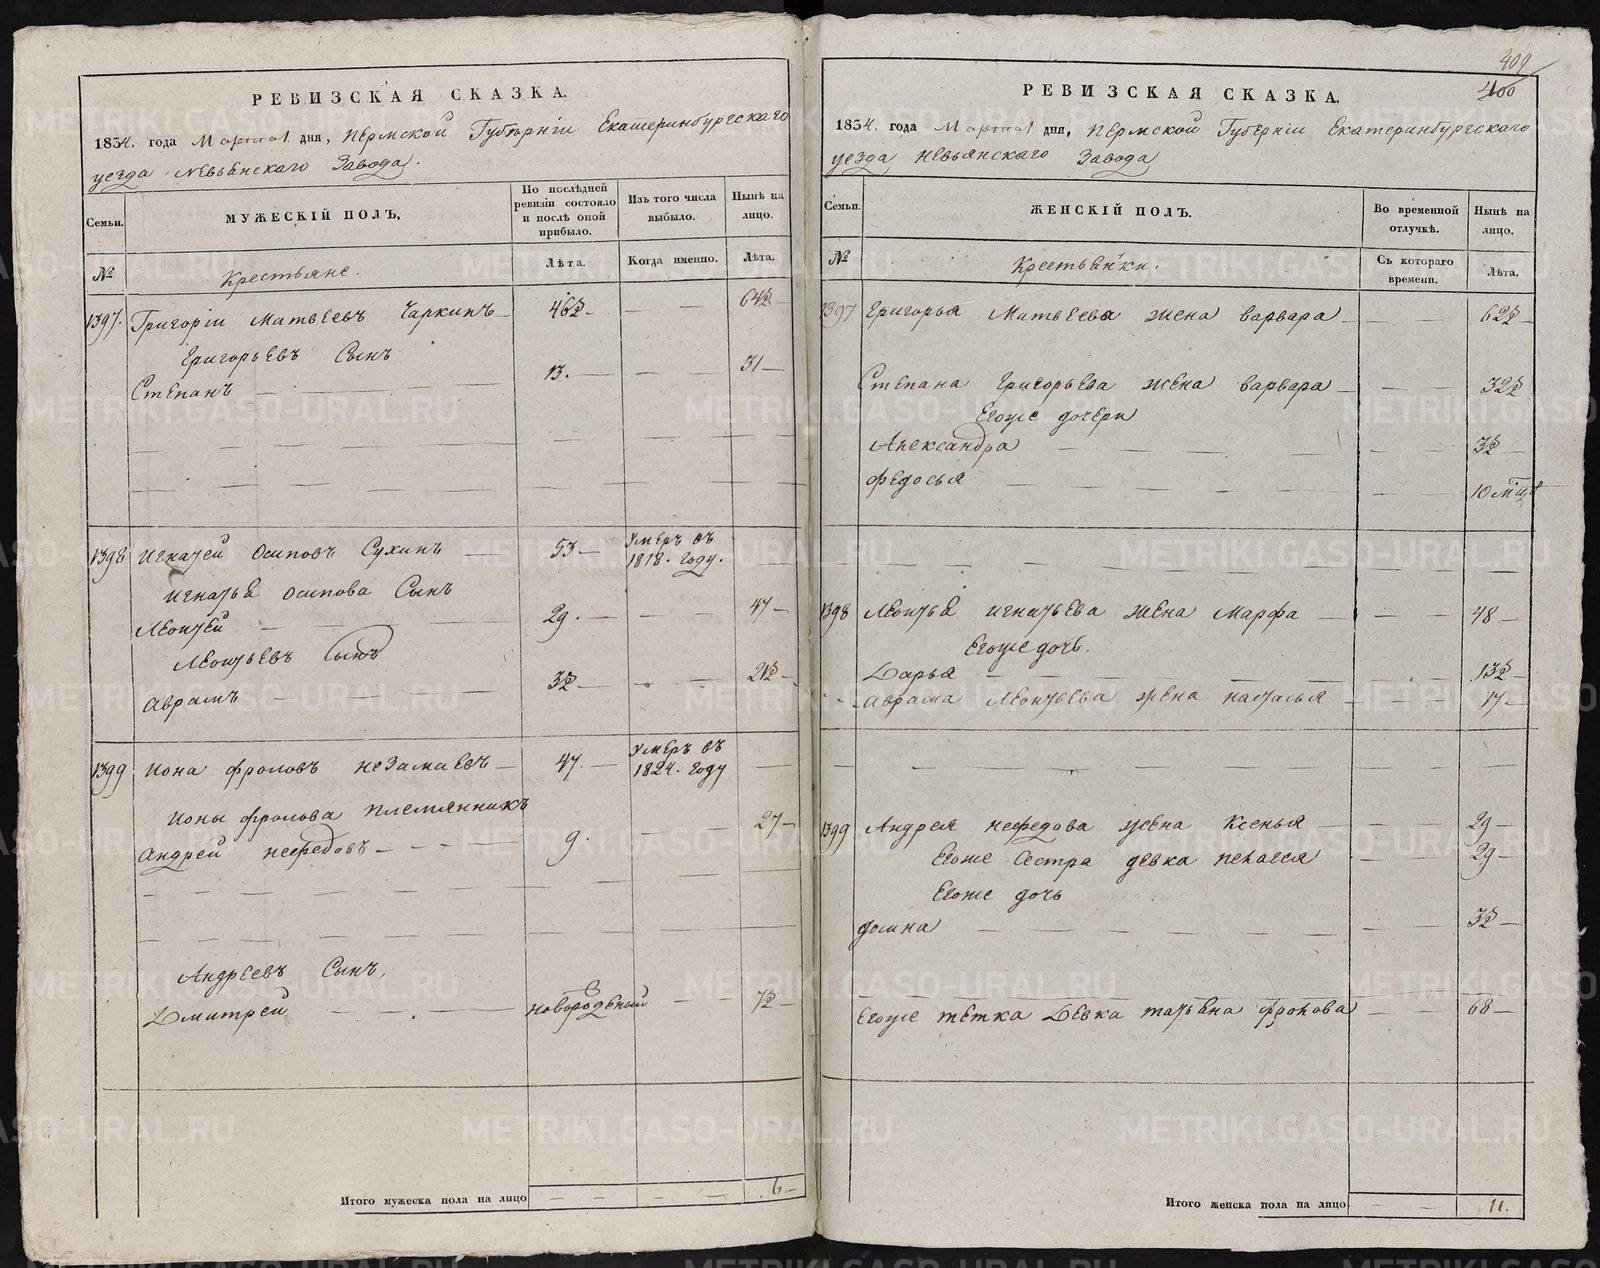 РЕВИЗСКАЯ СКАЗКА.
1834. года Марта 1 дня, Пермской Губерніи Екатеринбургскаго
уезда Невьянскаго Завода.
Семьи.
МУЖЕСКІЙ ПОЛЪ,
По послѣдней ревизіи состояло и послѣ оной прибыло.
Изъ того числа выбыло.
Нынѣ на лицо.
№
Крестьяне.
Лѣта.
Когда именно.
Лѣта.
1397. Григоріи Матвеевъ Чаркинъ 46½ 64½
Григорьевъ Сынъ
Степанъ 13. 31
1398 Игнатей Осиповъ Сухинъ 53 Умеръ въ 1818. Году.
Игнатья Осипова Сынъ
Леонтей 29. 47
Леонтьевъ Сынъ
Аврамъ 3½ 21½
1399 Иона Фроловъ Незамаевъ 47. Умеръ въ 1824. Году
Ионы Фролова племянникъ
Андрей Нефедовъ 9. 27
Андреевъ Сынъ,
Дмитрей новорожденый ½
Итого мужеска пола на лицо 6.
409
400
РЕВИЗСКАЯ СКАЗКА.
1834. года Марта 1 дня, Пермской Губерніи Екатеринбургскаго
уезда Невьянскаго Завода
Семьи.
ЖЕНСКІЙ ПОЛЪ.
Во временной отлучкѣ.
Нынѣ на лицо.
№
Крестьянки.
Съ котораго времени.
Лѣта.
1397 Григорья Матвеева жена варвара 62½
Степана Григорьева жена варвара 32½
Егоже дочери
Александра 3½
Федосья 10 м
1398 Леонтья Игнатьева жена Марфа 48
Егоже дочь.
Дарья 13½
Аврама Леонтьева жена настасья 17
1399 Андрея нефедова жена Ксенья 29
Егоже Сестра девка пелагея 29
Егоже дочь
домна 3½
Егоже тетка Девка татьяна фролова 68
Итого женска пола на лицо 11.
METRIKI.GASO-URAL.RU